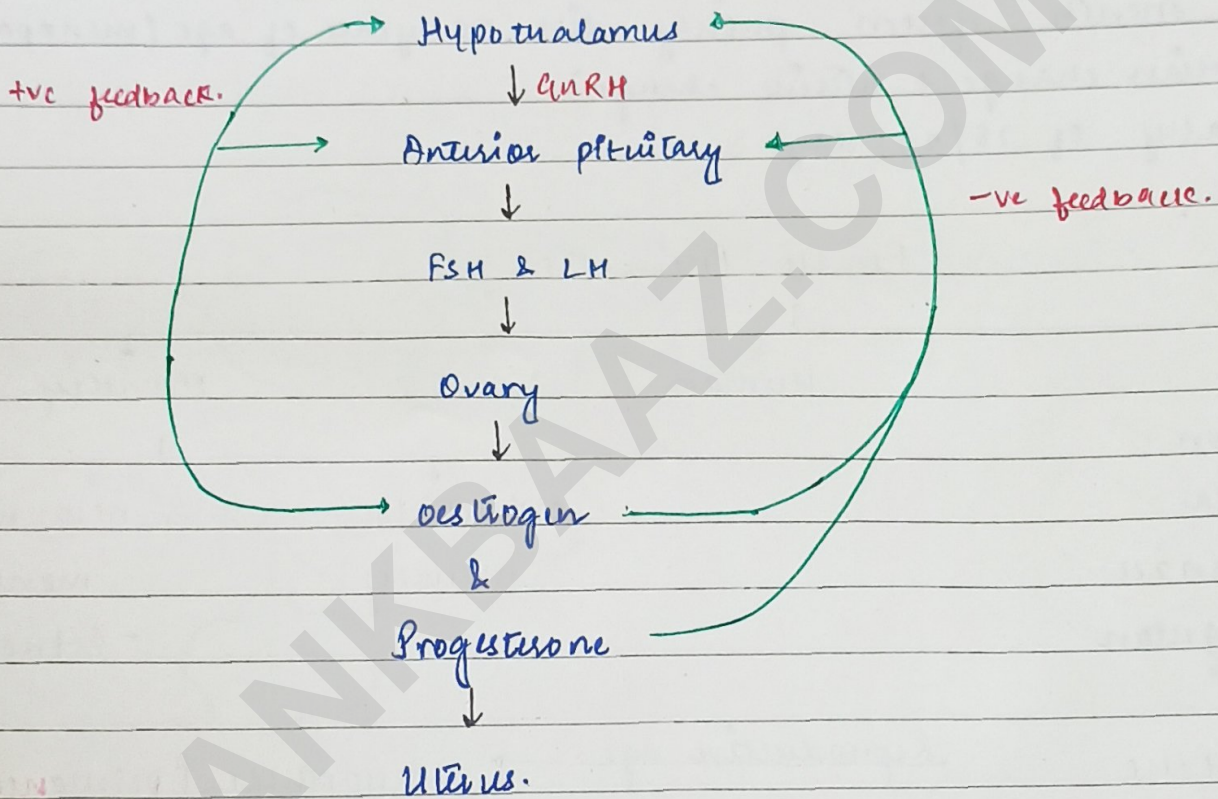 Hypothalamus
+ve feedback.
↓ GnRH
Anterior pituitary
-ve feedback.
↓
FSH & LH
↓
Ovary
↓
oestrogen
&
Progesterone
↓
Uterus.
ANKBAAZ.COM